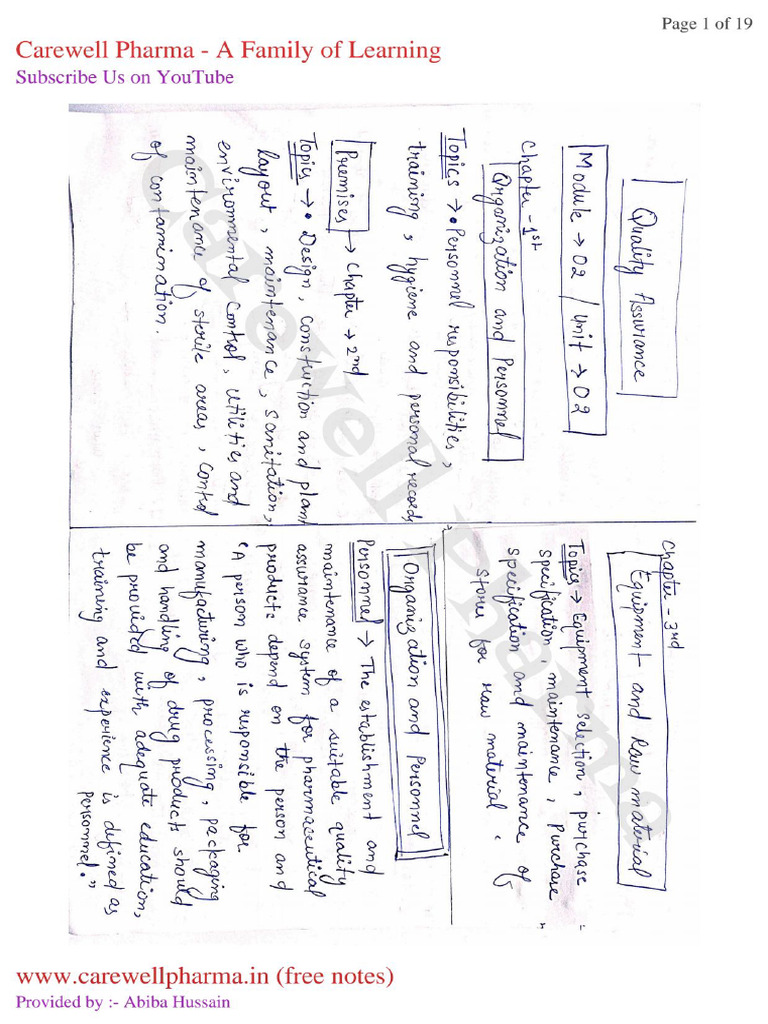 Page 1 of 19
Carewell Pharma - A Family of Learning
Subscribe Us on YouTube
Quality Assurance
Module → 02 / Unit → 02
Chapter - 1st
Organization and Personnel
Topics → • Personnel responsibilities,
training, hygiene and personal records
Premises → Chapter → 2nd
Topics → • Design, construction and plant
layout, maintenance, sanitation,
environmental control, utilities and
maintenance of sterile areas, control
of contamination.
Chapter - 3rd
Equipment and Raw material
Topics → Equipment selection, purchase
specification, maintenance, Purchase
specification and maintenance of
stores for raw material.
Organization and Personnel
Personnel → The establishment and
maintenance of a suitable quality
assurance system for pharmaceutical
products depend on the person and
"A person who is responsible for
manufacturing, processing, packaging
and handling of drug products should
be provided with adequate education,
training and experience is defined as
Personnel."
Carewell Pharma
www.carewellpharma.in (free notes)
Provided by :- Abiba Hussain